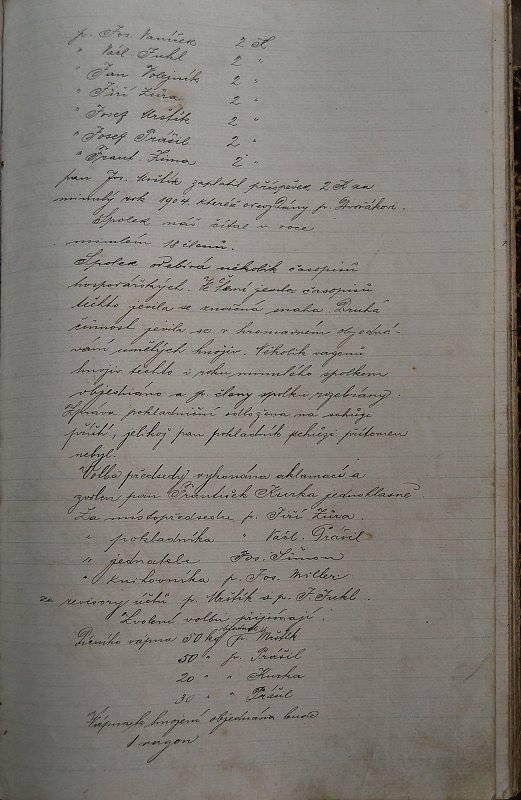 p. Jos. Vaníček 2 K
" Václ. Fuhl 2 "
" Jan Volejník 2 "
" Jiří Zůza 2 "
" Josef Mrštík 2 "
" Josef Prášil 2 "
" Frant. Zima 2 "
pan Jos. Mrštík zaplatil příspěvek 2 K za
minulý rok 1904. kteréž odevzdány p. Dvořákovi.
Spolek náš čítal v roce
minulém 18 členů.
Spolek odebírá několik časopisů
hospodářských. Ve čtení jevila časopisů
těchto jevila se značná snaha Druhá
činnost jevila se v hromadném objedná-
vání umělých hnojiv. Několik vagonů
hnojiv těchto i roku minulého spolkem
objednáno a p. členy spolku rozebrány.
Zpráva pokladniční odložena na schůzi
příští, jelikož pan pokladník schůzi přítomen
nebyl.
Volba předsedy vykonána aklamací a
zvolen pan František Kurka jednohlasně.
Za místopředsedu p. Jiří Zůza.
" pokladníka " Václ. Prášil
" jednatele Jos. Šimon
" knihovníka p. Jos. Miller
za revisory účtů p. Mrštík a p. F. Fuhl.
Zvolení volbu přijímají.
Pícního vápna 50 kg objednal p. Mrštík
50 " p. Prášil
20 " " Kurka
30 " " Prášil
Vápna k hnojení objednána bude
1 vagon